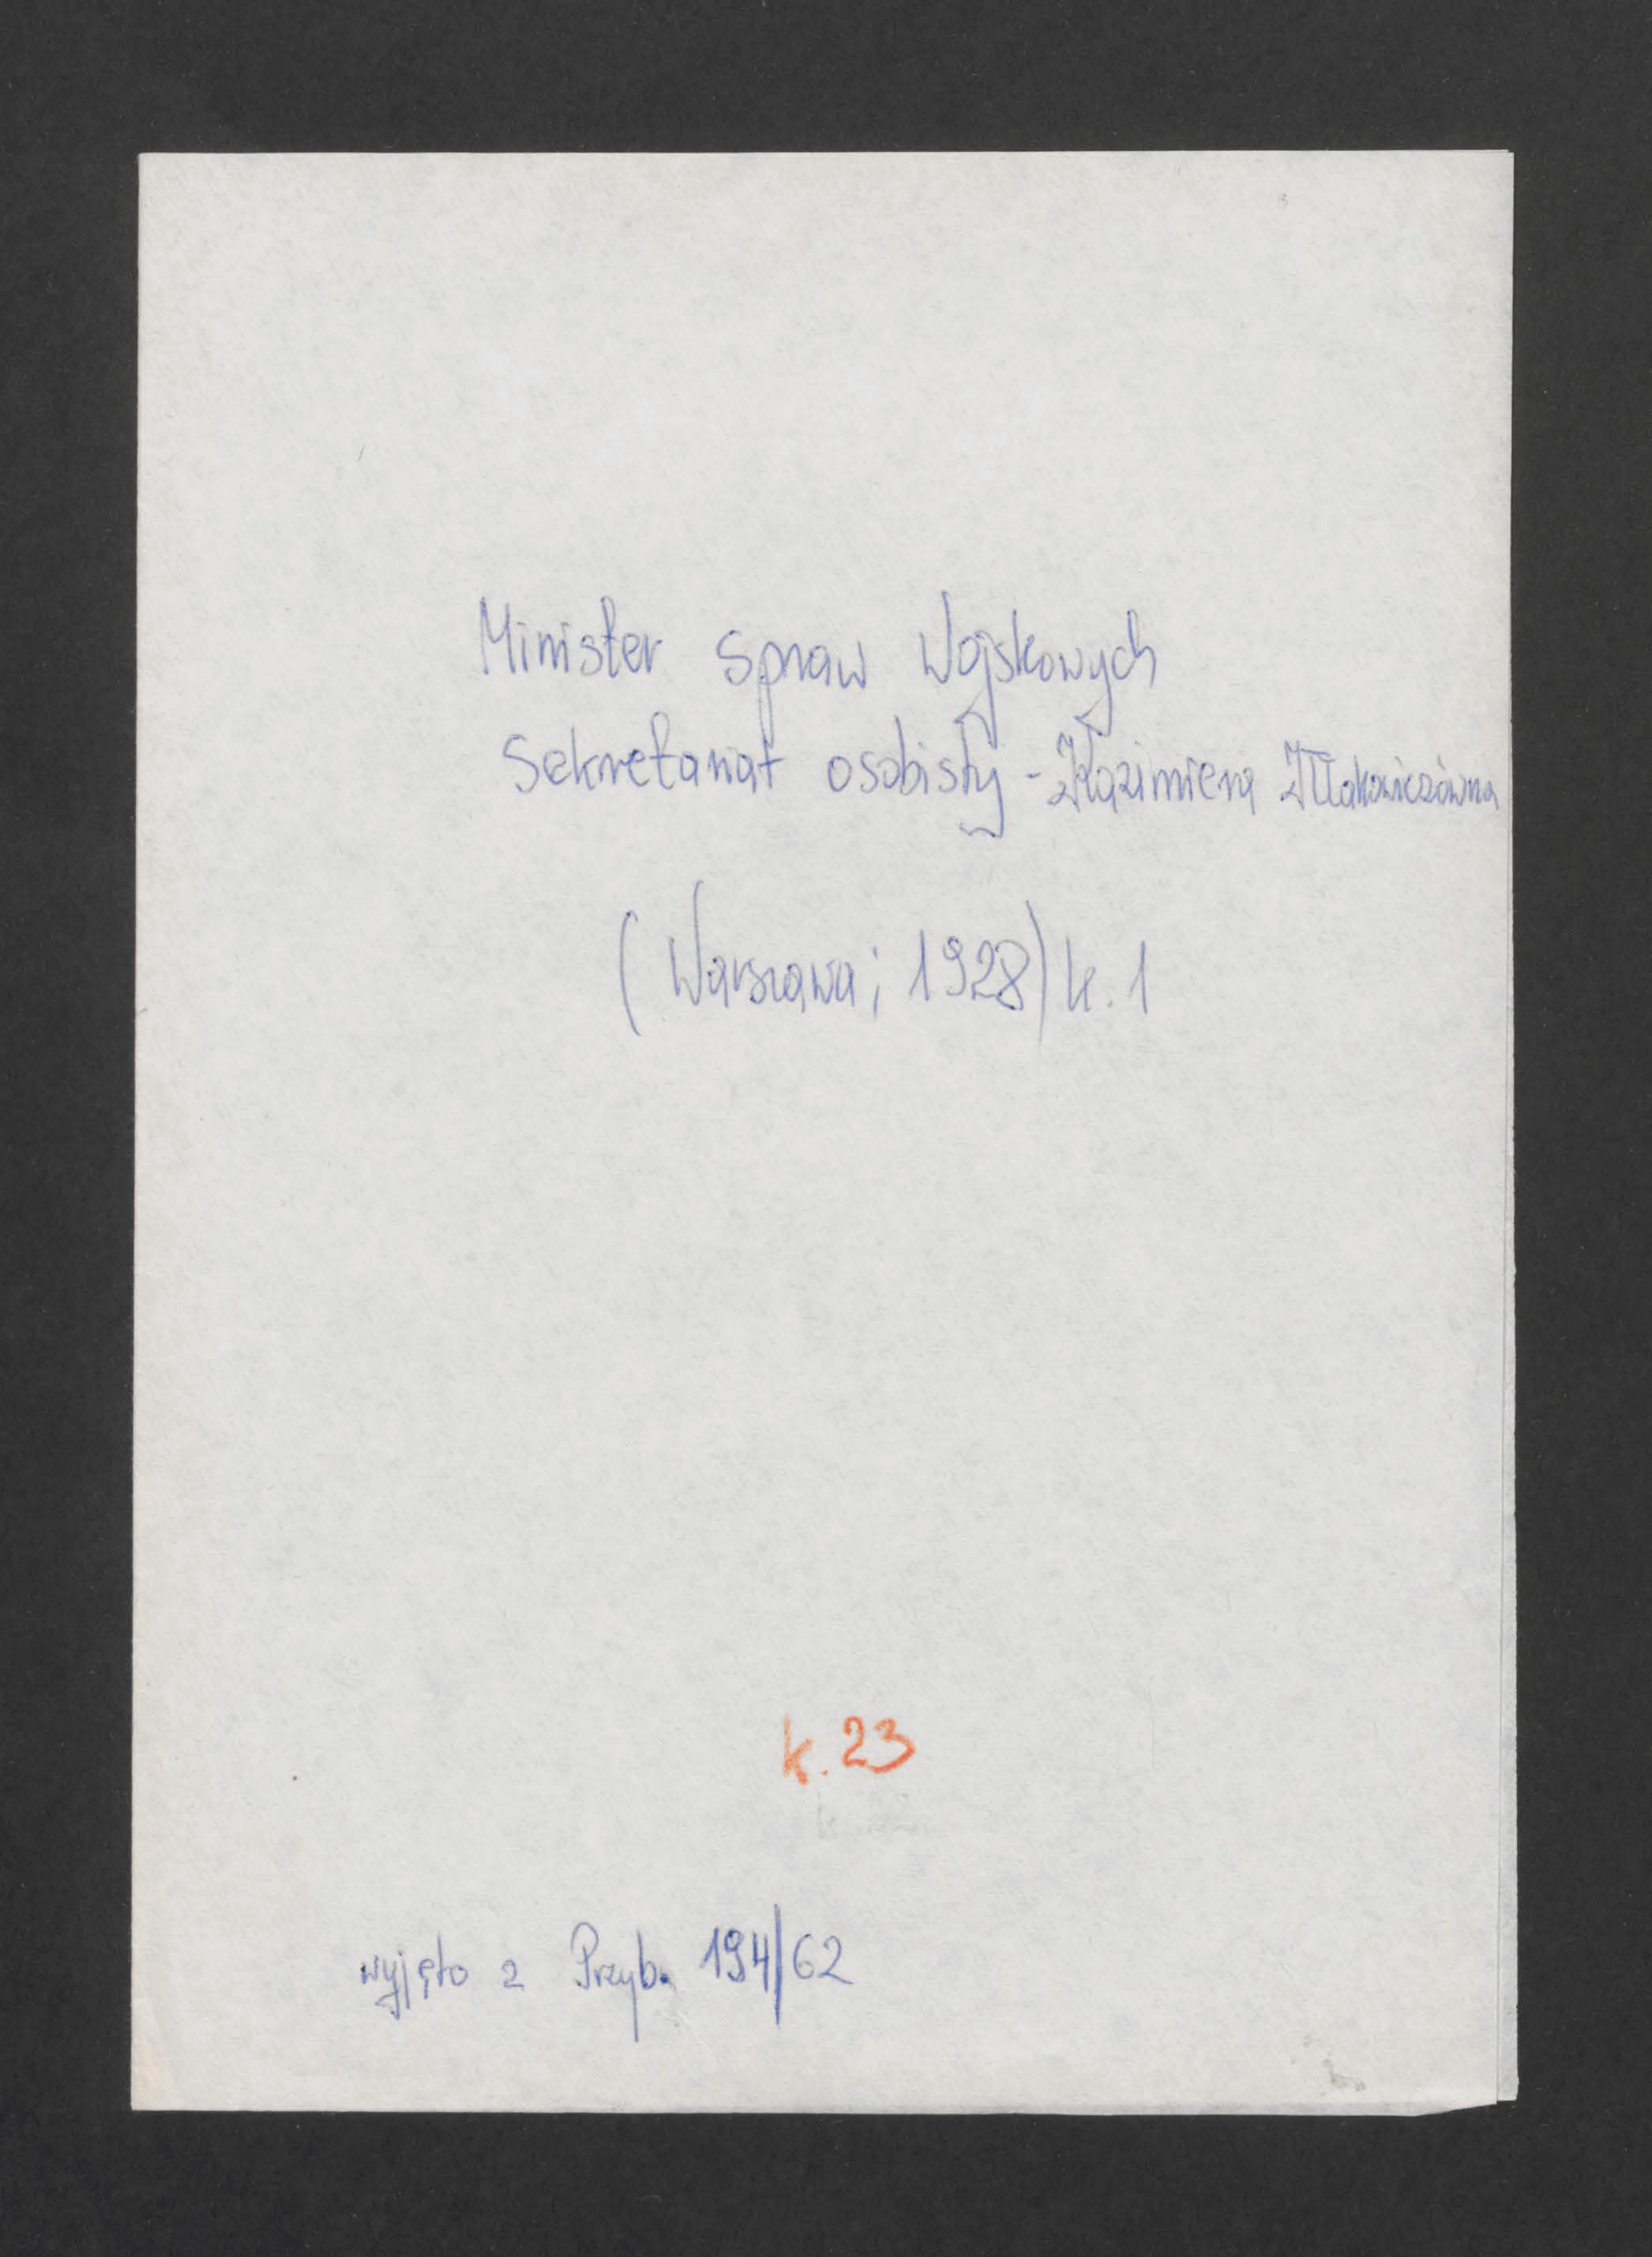 Minister Spraw Wojskowych
Sekretariat osobisty - Kazimiera Iłłakowiczówna
(Warszawa; 1928) k. 1
k. 23
wyjęto z Przyb. 194/62